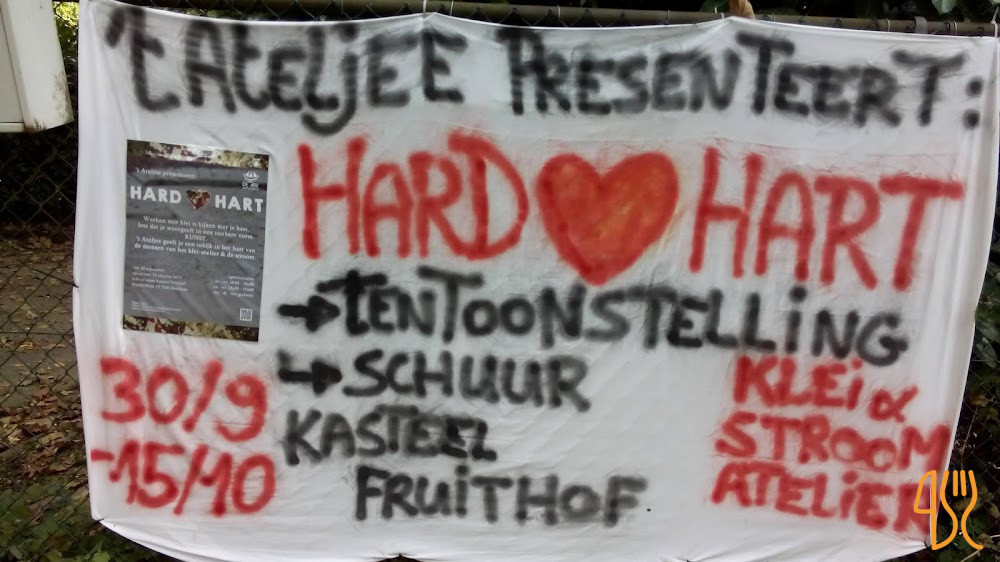 't AteljEE PRESENTEERT:
HARD HART
→ tENTOONSTELLiNG
↳ SCHUUR
KASTEEL
FRUiTHOF
30/9
-15/10
KLEi &
STROOM
ATELiER
't Ateljee presenteert:
HARD HART
Werken met klei is kijken met je hart,
Iets dat je weergeeft in een tastbare vorm.
KUNST.
't Ateljee geeft je een inkijk in het hart van
de mensen van het klei-atelier & de stroom.